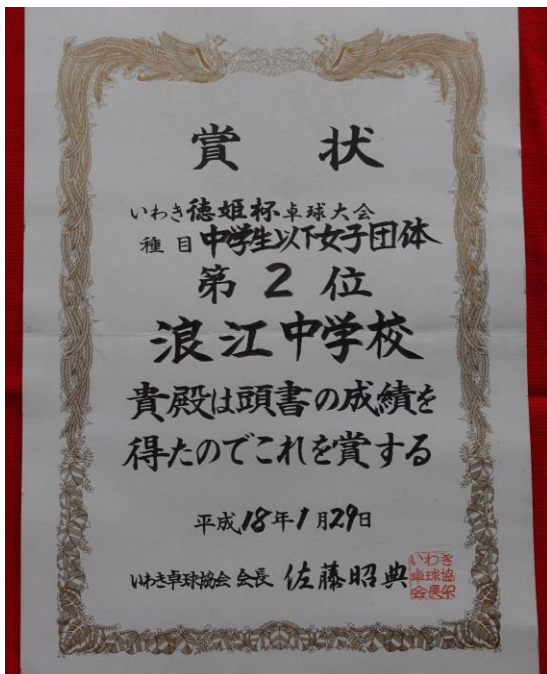 賞状
いわき徳姫杯卓球大会
種目中学生以下女子団体
第2位
浪江中学校
貴殿は頭書の成績を
得たのでこれを賞する
平成18年1月29日
いわき卓球協会会長 佐藤昭典
いわき
卓球協
会長印